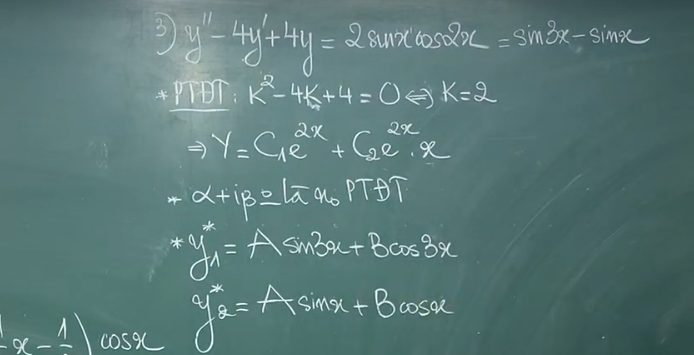 3) y'' - 4y' + 4y = 2sinx cos2x = sin3x - sinx
* PTĐT: K² - 4K + 4 = 0 ⇔ K = 2
⇒ Y = C₁e²ˣ + C₂e²ˣ . x
* α + iβ là n₀ PTĐT
* y₁* = A sin3x + B cos3x
y₂* = A sinx + B cosx
x - 1 ) cosx